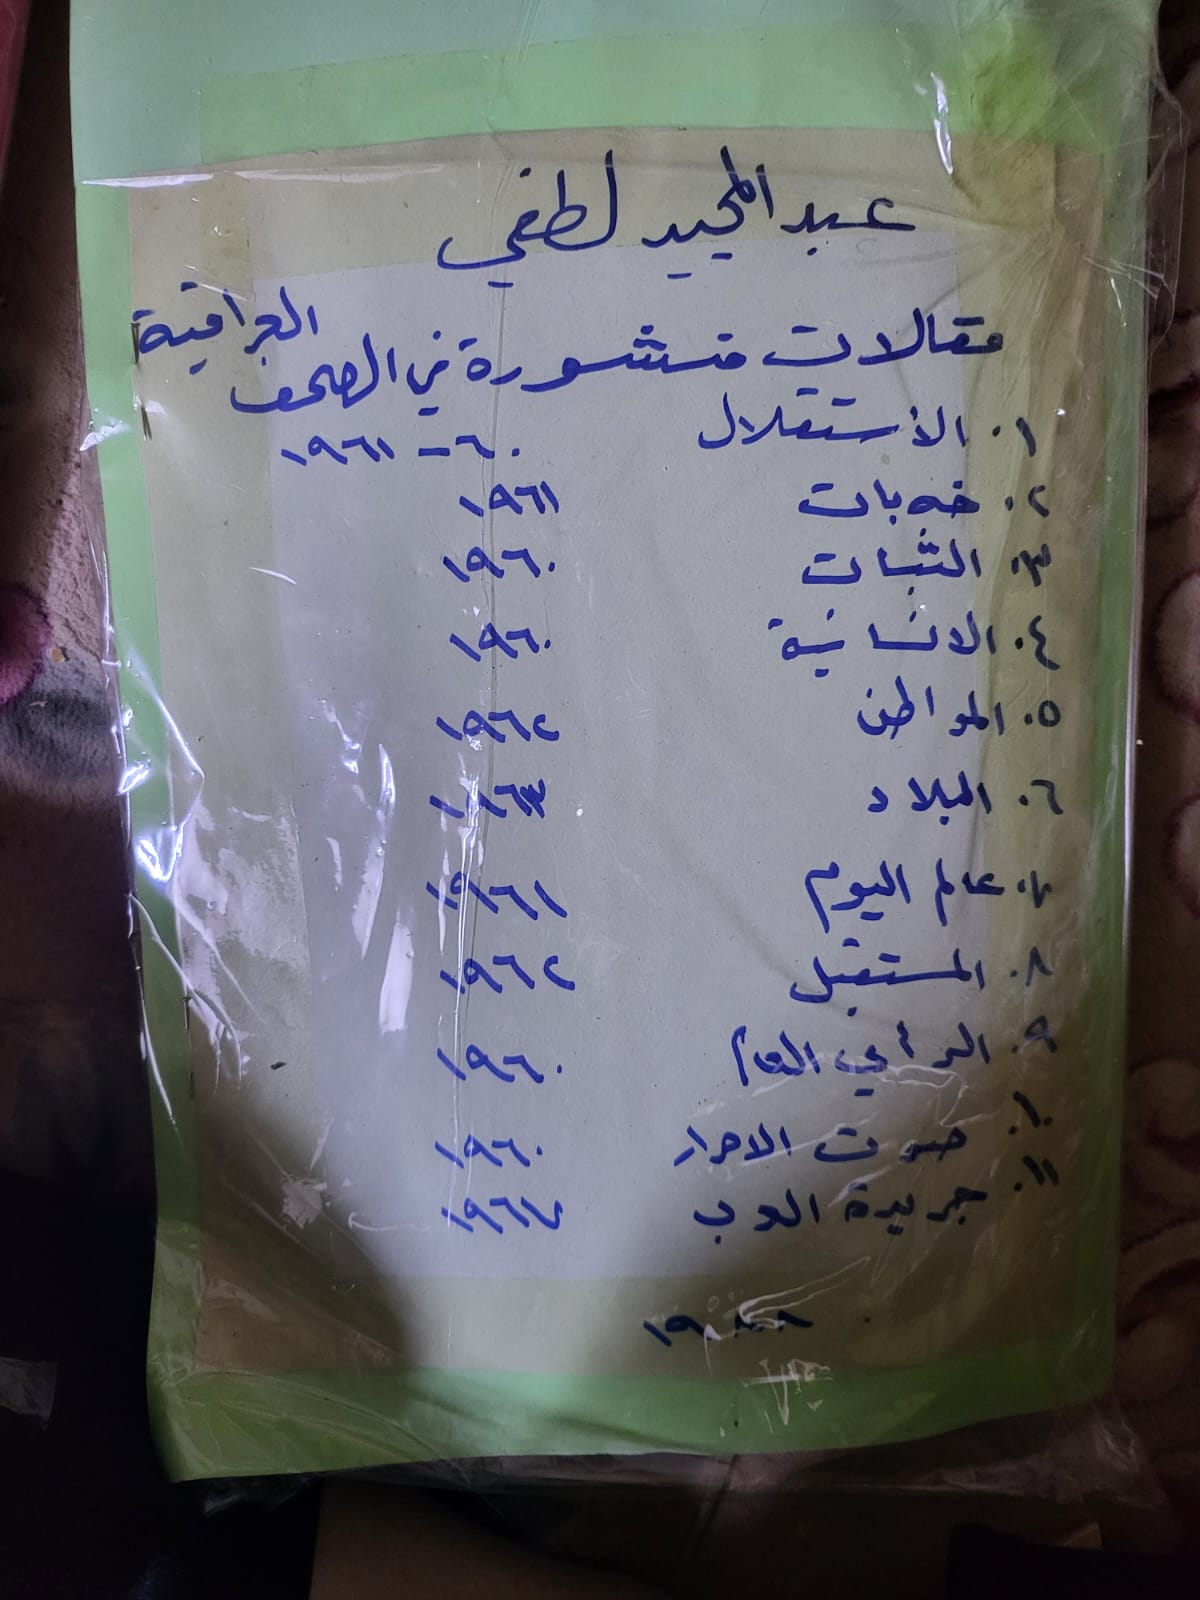 عبد المجيد لطفي
مقالات منشورة في الصحف العراقية
١. الأستقلال ٦٠ - ١٩٦١
٢. خه بات ١٩٦١
٣. الثبات ١٩٦٠
٤. الانسانية ١٩٦٠
٥. المواطن ١٩٦٢
٦. البلاد ١٩٦٣
٧. عالم اليوم ١٩٦١
٨. المستقبل ١٩٦٢
٩. الرأي العام ١٩٦٠
١٠. صوت الاحرار ١٩٦٠
١١. جريدة العرب